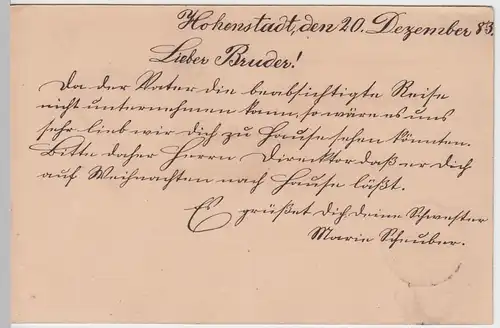 Hohenstadt, den 20. Dezember 83.
Lieber Bruder!
Da der Vater die beabsichtigte Reise
nicht unternehmen kann, so wäre es uns
sehr lieb wir dich zu Hause sehen könnten.
Bitte daher Herrn Direktor daß er dich
auf Weihnachten nach Hause läßt.
Es grüßet dich deine Schwester
Marie Scheuber.